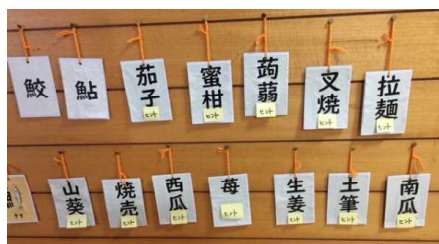 鮫
鮎
茄子
ヒント
蜜柑
ヒント
蒟蒻
ヒント
叉焼
ヒント
拉麺
ヒント
山葵
ヒント
焼売
ヒント
西瓜
ヒント
苺
ヒント
生姜
ヒント
土筆
ヒント
南瓜
ヒント